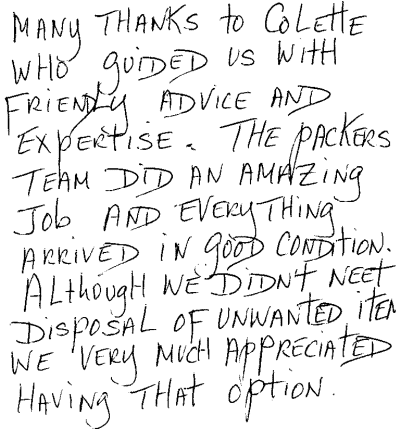 MANY THANKS to COLETTE
WHO GUIDED US WITH
FRIENDLY ADVICE AND
EXPERTISE. THE PACKERS
TEAM DID AN AMAZING
JOB AND EVERYTHING
ARRIVED IN GOOD CONDITION.
ALTHOUGH WE DIDN'T NEET
DISPOSAL OF UNWANTED ITEM
WE VERY MUCH APPRECIATED
HAVING THAT OPTION.